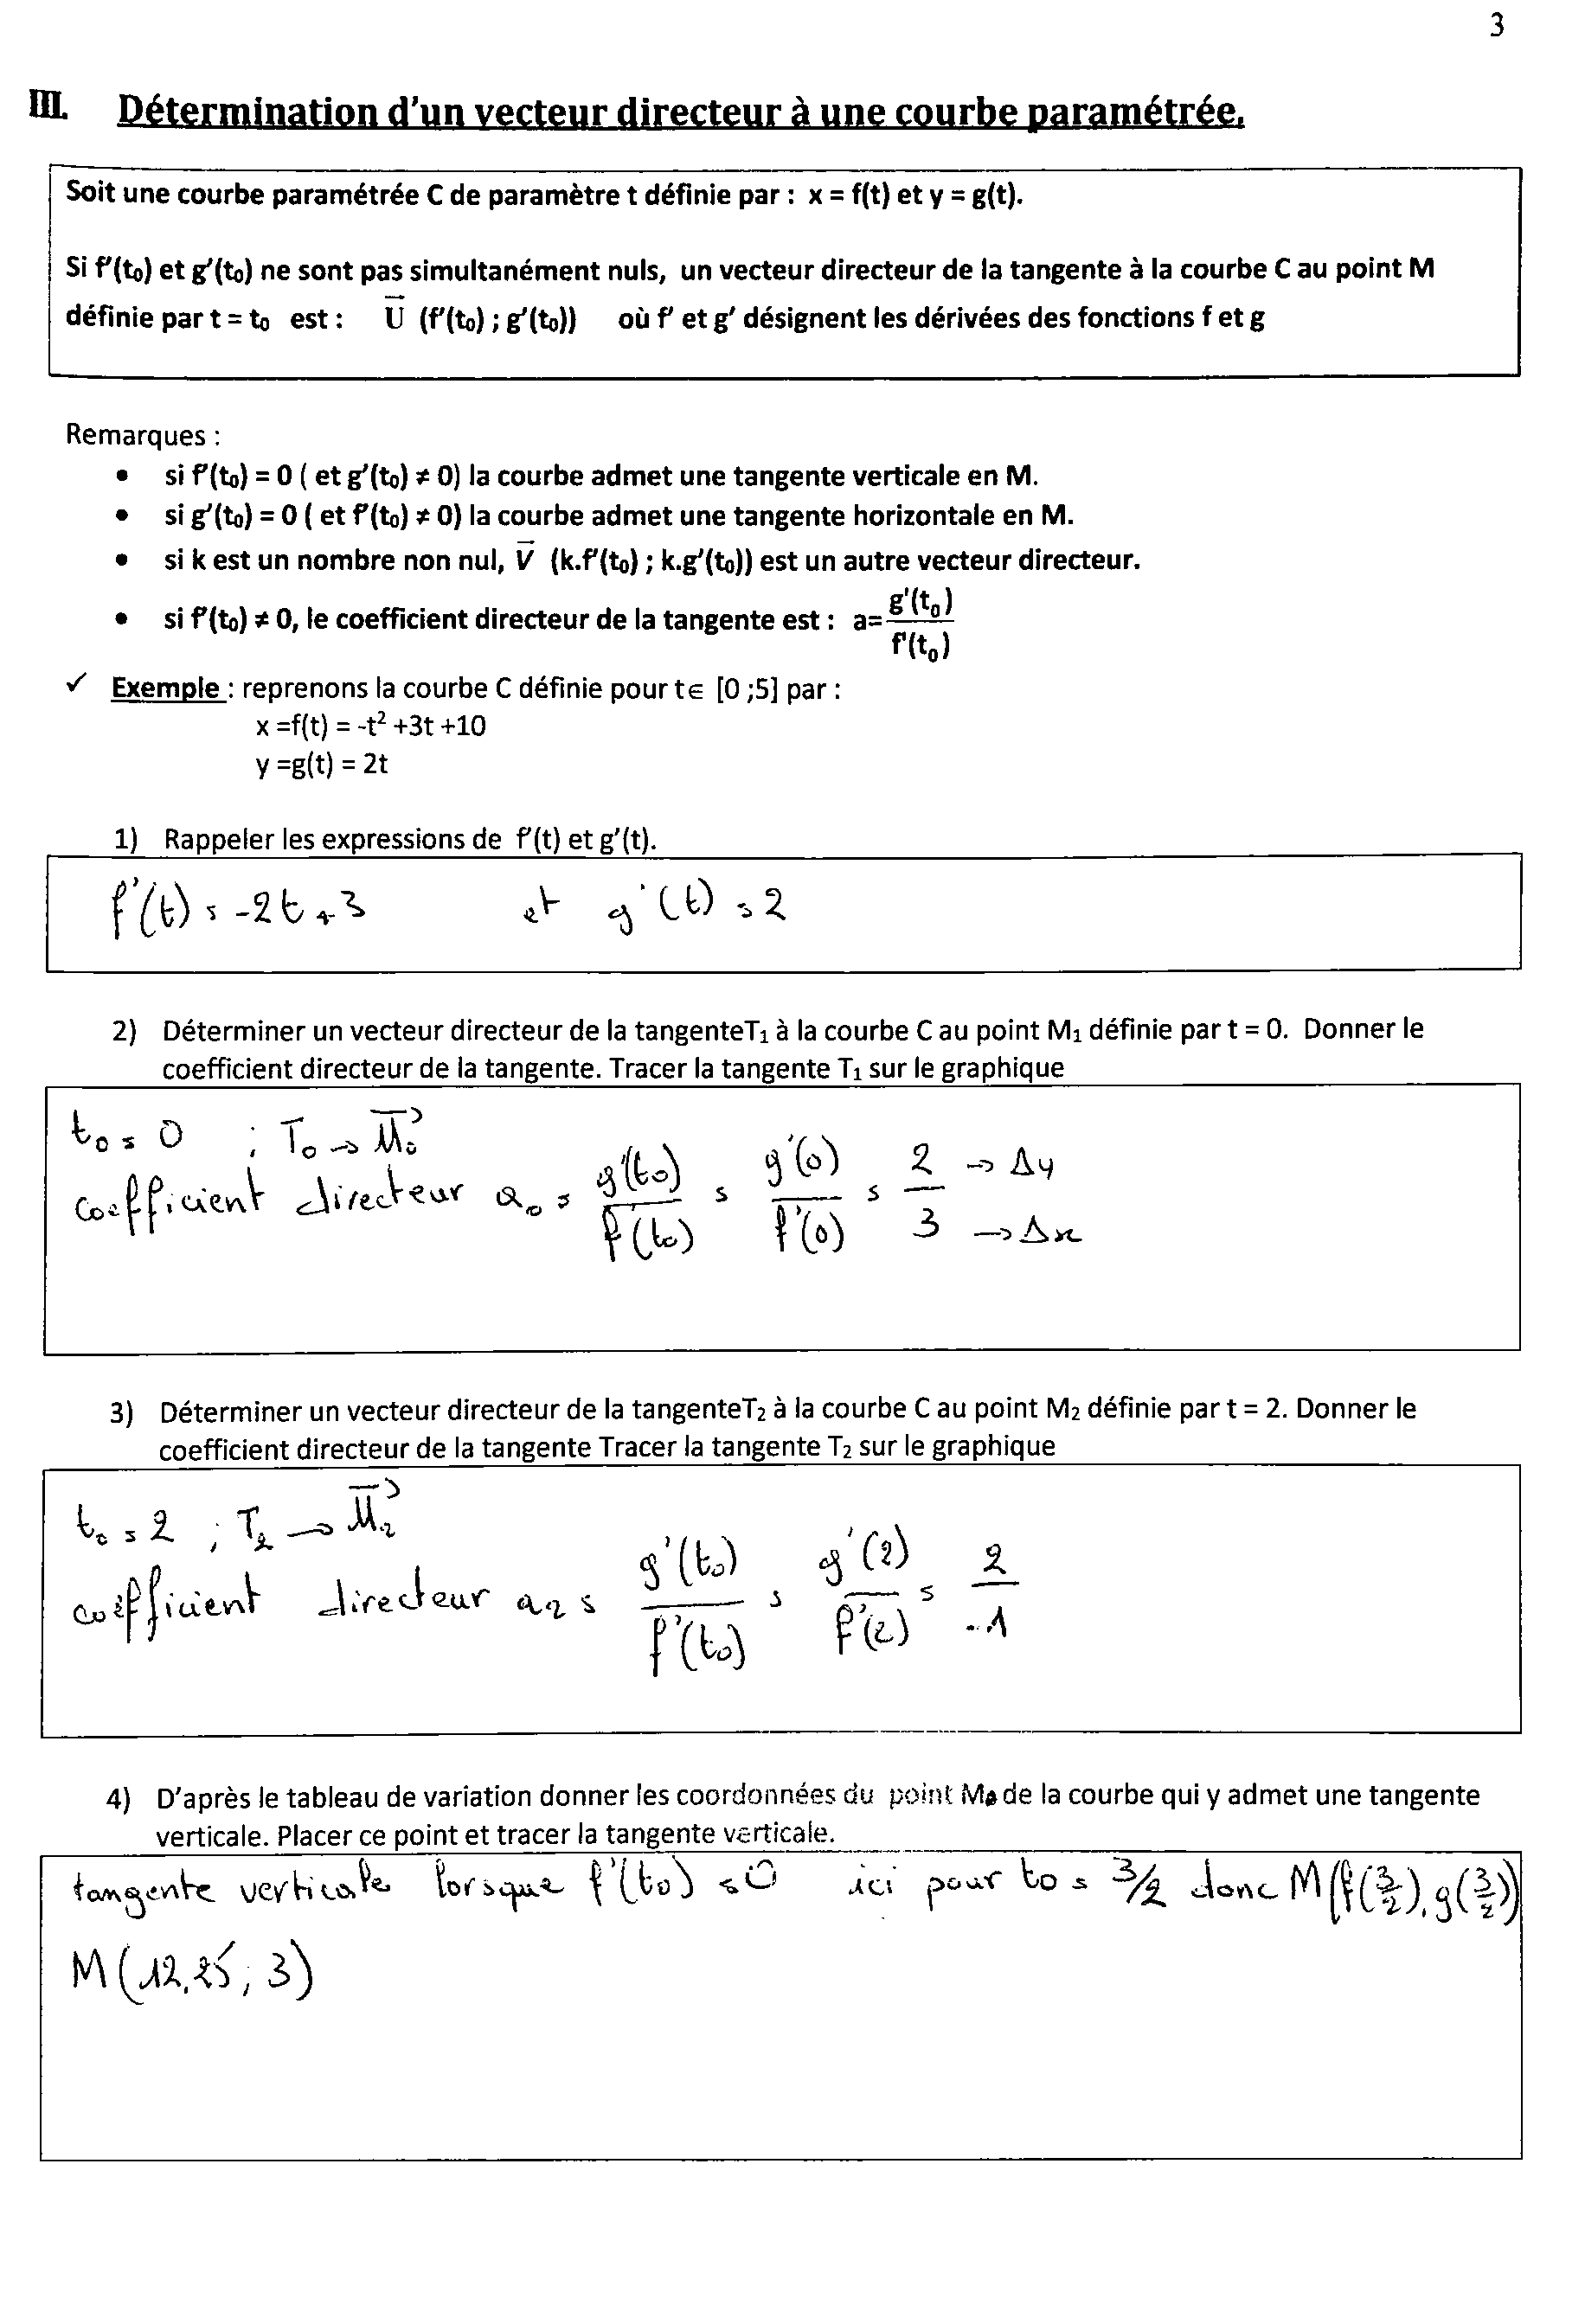 3
III. Détermination d'un vecteur directeur à une courbe paramétrée.
Soit une courbe paramétrée C de paramètre t définie par : x = f(t) et y = g(t).
Si f'(t₀) et g'(t₀) ne sont pas simultanément nuls, un vecteur directeur de la tangente à la courbe C au point M
définie par t = t₀ est : U⃗ (f'(t₀) ; g'(t₀)) où f' et g' désignent les dérivées des fonctions f et g
Remarques :
• si f'(t₀) = 0 ( et g'(t₀) ≠ 0) la courbe admet une tangente verticale en M.
• si g'(t₀) = 0 ( et f'(t₀) ≠ 0) la courbe admet une tangente horizontale en M.
• si k est un nombre non nul, V⃗ (k.f'(t₀) ; k.g'(t₀)) est un autre vecteur directeur.
• si f'(t₀) ≠ 0, le coefficient directeur de la tangente est : a= g'(t₀) / f'(t₀)
✓ Exemple : reprenons la courbe C définie pour t∈ [0 ;5] par :
x =f(t) = -t² +3t +10
y =g(t) = 2t
1) Rappeler les expressions de f'(t) et g'(t).
f'(t) = -2t +3 et g'(t) = 2
2) Déterminer un vecteur directeur de la tangenteT₁ à la courbe C au point M₁ définie par t = 0. Donner le
coefficient directeur de la tangente. Tracer la tangente T₁ sur le graphique
t₀ = 0 ; T₀ → M₀⃗
coefficient directeur a₀ = g'(t₀) / f'(t₀) = g'(0) / f'(0) = 2 / 3 → Δy → Δx
3) Déterminer un vecteur directeur de la tangenteT₂ à la courbe C au point M₂ définie par t = 2. Donner le
coefficient directeur de la tangente Tracer la tangente T₂ sur le graphique
t₀ = 2 ; T₂ → M₂⃗
coefficient directeur a₂ = g'(t₀) / f'(t₀) = g'(2) / f'(2) = 2 / -1
4) D'après le tableau de variation donner les coordonnées du point M de la courbe qui y admet une tangente
verticale. Placer ce point et tracer la tangente verticale.
tangente verticale lorsque f'(t₀) = 0 ici pour t₀ = 3/2 donc M(f(3/2), g(3/2))
M(12,25 ; 3)